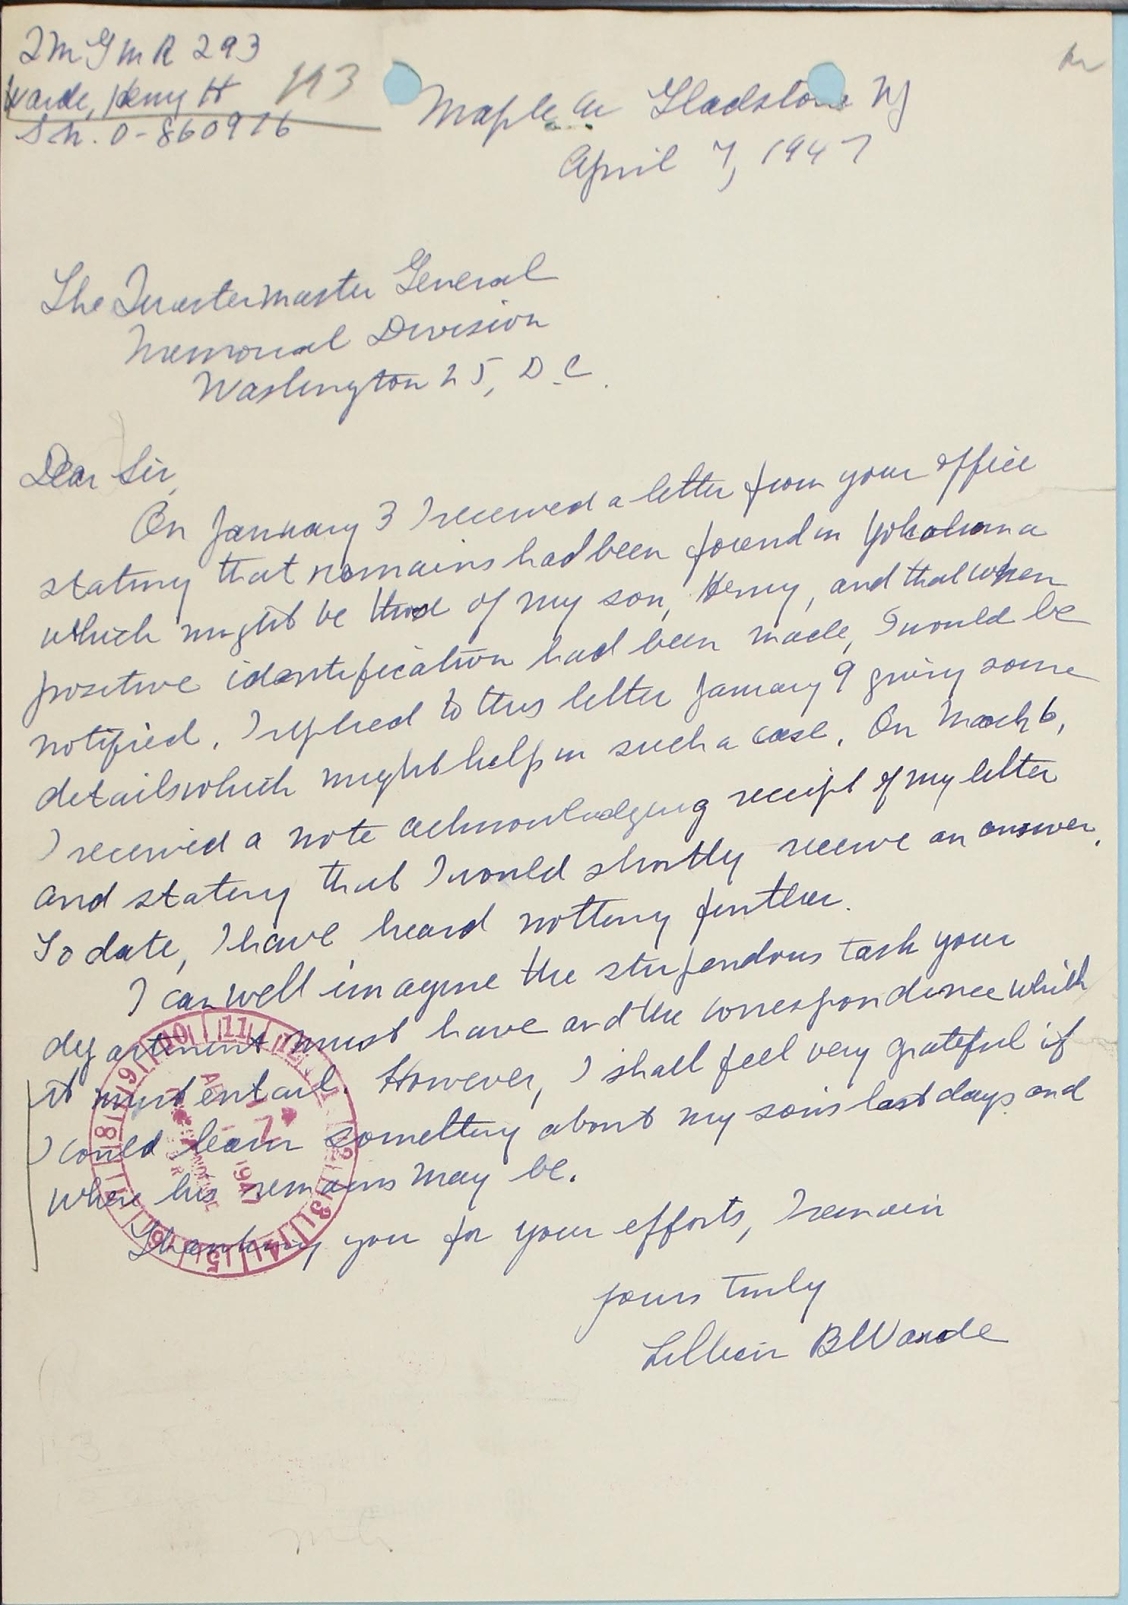 QMGMR 293
Warde, Henry H 293
SN. O-860916
Maple Av Gladstone NJ
April 7, 1947
The Quartermaster General
Memorial Division
Washington 25, D.C.
Dear Sir,
On January 3 I received a letter from your office
stating that remains had been found in Yokohama
which might be those of my son, Henry, and that when
positive identification had been made, I would be
notified. I replied to this letter January 9 giving some
details which might help in such a case. On March 6,
I received a note acknowledging receipt of my letter
and stating that I would shortly receive an answer.
To date, I have heard nothing further.
I can well imagine the stupendous task your
department must have and the correspondence which
it must entail. However, I shall feel very grateful if
I could learn something about my son's last days and
where his remains may be.
Thanking you for your efforts, I remain
Yours truly
Lillian B Warde
10 11 12 1 2 3 4 5 6 7 8 9
1947